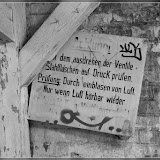 dem ausdrehen der Ventile
Stahlflaschen auf Druck prüfen.
Prüfung: Durch einblasen von Luft
Nur wenn Luft hörbar wieder